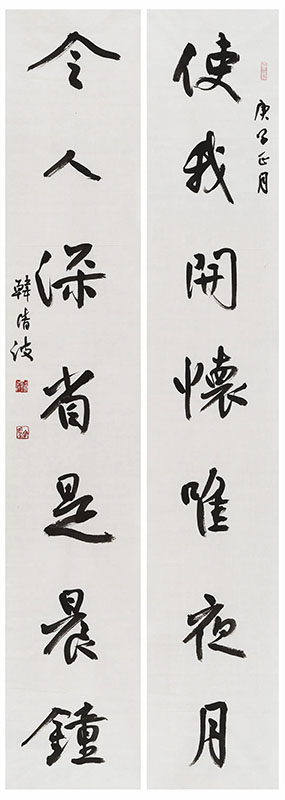 庚子正月
使我開懷唯夜月
令人深省是晨鐘
韓清波